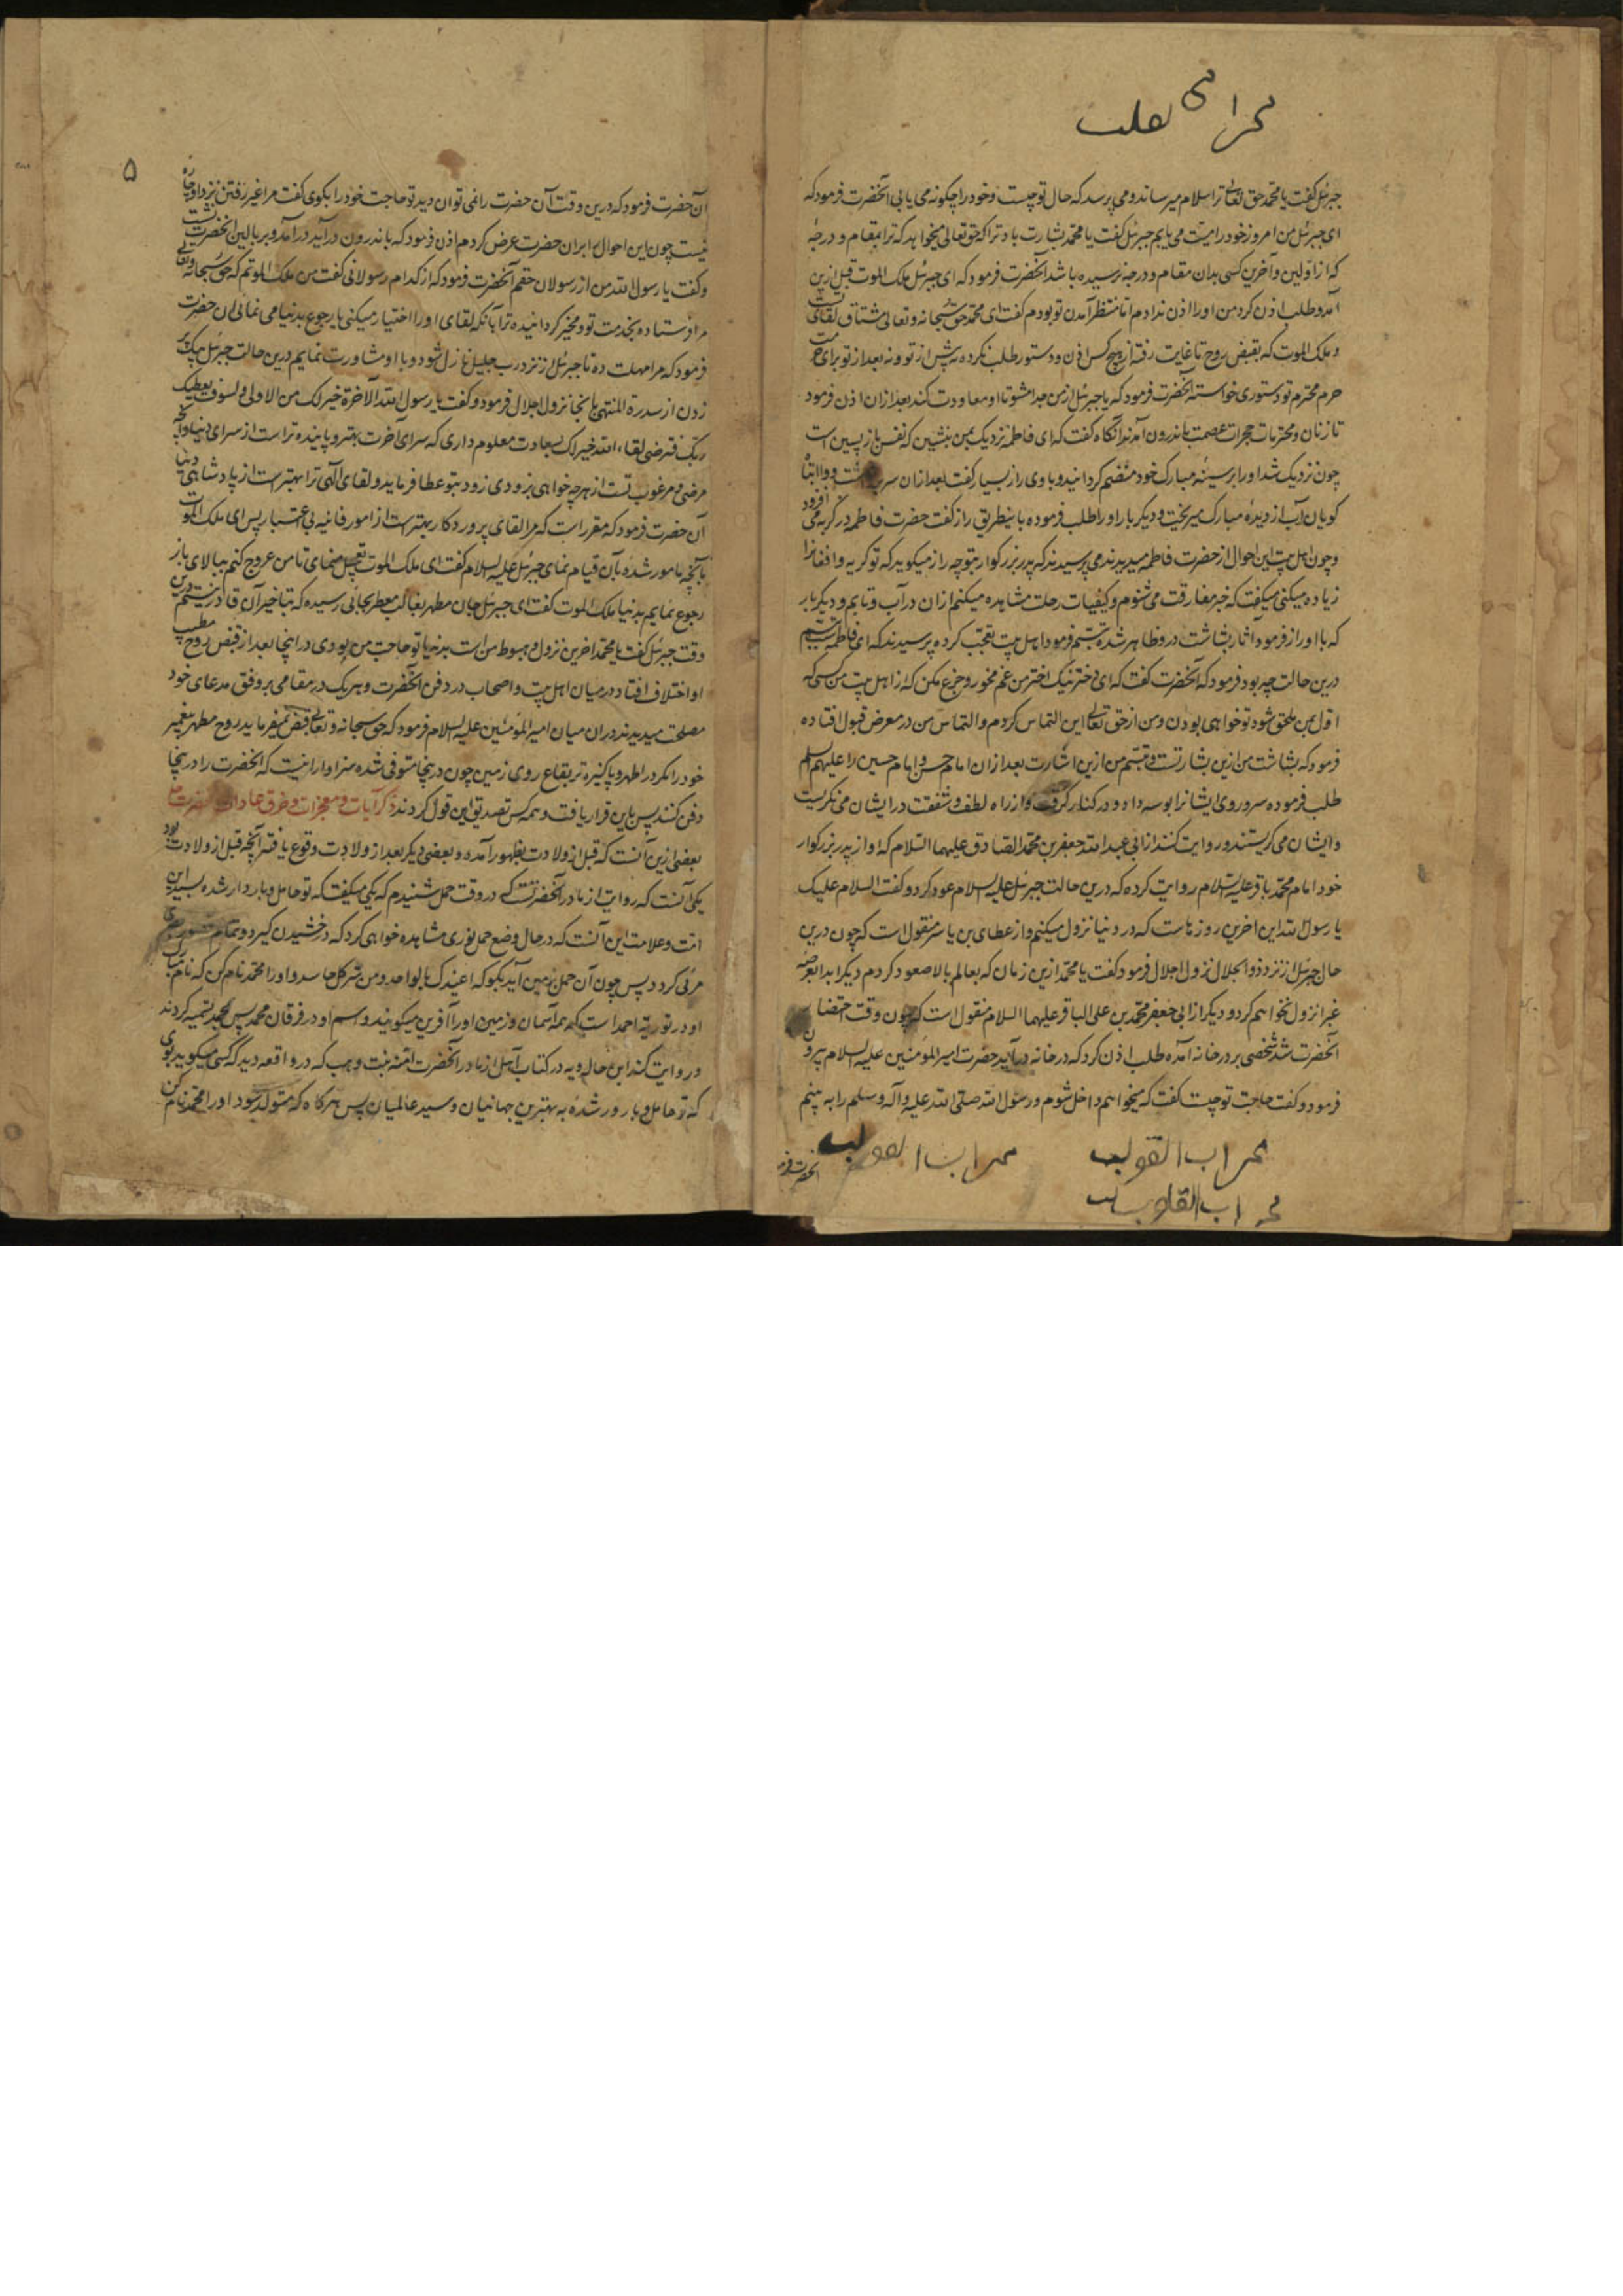 جبرئیل گفت یا محمد حق تعالی ترا سلام میرساند و می پرسد که حال تو چیست و خود را چگونه می یابی آنحضرت فرمود که
ای جبرئیل من امروز خود را میّت می یابم جبرئیل گفت یا محمد بشارت باد ترا که حق تعالی میخواهد که ترا بمقام و درجهٔ
که از اولین و آخرین کسی بدان مقام و درجه نرسیده باشد آنحضرت فرمود که ای جبرئیل ملک الموت قبل ازین
آمد و طلب اذن کرد من او را اذن ندادم تا منتظر آمدن تو بودم گفت ای محمد حق سبحانه و تعالی مشتاق لقای تست
و ملک الموت که بقبض روح تا غایت رفته از هیچ کس اذن و دستور طلب نکرده نه پیش از تو و نه بعد از تو برای حرمت
حرم محترم تو دستوری خواسته آنحضرت فرمود که یا جبرئیل از من جدا مشو تا او معاودت کند بعد از ان اذن فرمود
تا زنان و مخدرات حجرات عصمت باندرون آمدند آنگاه گفت که ای فاطمه نزدیک بمن بنشین که نفس باز پسین است
چون نزدیک شد او را بر سینهٔ مبارک خود منضم گردانید و با وی راز بسیار گفت بعد از ان سر برداشت و
گویان آب از دیدهٔ مبارک میریخت و دیگر بار او را طلب فرموده باینطریق راز گفت حضرت فاطمه در گریه می افزود
و چون اهل بیت این احوال از حضرت فاطمه میدیدند می پرسیدند که پدر بزرگوار بتو چه راز میگوید که تو گریه و افغان را
زیاده میکنی میگفت که خبر مفارقت می شنوم و کیفیات رحلت مشاهده میکنم ازان در آب و تابم و دیگر بار
که با او راز فرمود آثار بشاشت در و ظاهر شده تبسّم فرمود اهل بیت تعجب کرده پرسیدند که ای فاطمه تبسّم
درین حالت چه بود فرمود که آنحضرت گفت که ای دختر نیک اختر من غم مخور و جزع مکن که از اهل بیت من کسی که
اول بمن ملحق شود تو خواهی بودن و من از حق تعالی این التماس کردم و التماس من در معرض قبول افتاده
فرمود که بشاشت من ازین بشارتست و تبسّم من ازین اشارت بعد ازان امام حسن و امام حسین را علیهم السلام
طلب فرموده سر و روی ایشانرا بوسه داد و در کنار گرفت و از راه لطف و شفقت در ایشان می نگریست
و ایشان می گریستند و روایت کنند از ابی عبد الله جعفر بن محمد الصادق علیهما السلام که او از پدر بزرگوار
خود امام محمد باقر علیه السلام روایت کرده که درین حالت جبرئیل علیه السلام عود کرد و گفت السلام علیک
یا رسول الله این اخرین روزهاست که در دنیا نزول میکنم و از عطای بن یاسر منقول است که چون درین
حال جبرئیل از نزد ذو الجلال نزول اجلال فرمود گفت یا محمد ازین زمان که بعالم بالا صعود کردم دیگر ابدا بعرصهٔ
غبرا نزول نخواهم کرد و دیگر از ابی جعفر محمد بن علی الباقر علیهما السلام منقول است که چون وقت احتضار
آنحضرت شد شخصی بر در خانه آمده طلب اذن کرد که در خانه در آید حضرت امیر المؤمنین علیه السلام بیرون
فرمود و گفت حاجت تو چیست گفت که میخواهم داخل شوم و رسول الله صلی الله علیه و آله وسلم را به بینم
محراب القلوب
آنحضرت فرمود
۵
آن حضرت فرمود که درین وقت آن حضرت را نمی توان دید تو حاجت خود را بگوی گفت مرا غیر رفتن نزد او چاره
نیست چون این احوال بر ان حضرت عرض کردم اذن فرمود که باندرون در آید در آمد و بر بالین آنحضرت نشست
و گفت یا رسول الله من از رسولان حقم آنحضرت فرمود که از کدام رسولانی گفت من ملک الموتم که حق سبحانه و تعالی
مرا فرستاده بخدمت تو و مخیر گردانیده ترا بآنکه لقای او را اختیار میکنی یا رجوع بدنیا می نمائی ان حضرت
فرمود که مرا مهلت ده تا جبرئیل از نزد رب جلیل نازل شود و با او مشاورت نمایم درین حالت جبرئیل بیک پر
زدن از سدرة المنتهی بانجا نزول اجلال فرمود و گفت یا رسول الله الآخرة خیر لک من الاولی و لسوف یعطیک
ربک فترضی لقاء الله خیر لک بسعادت معلوم داری که سرای آخرت بهتر و پاینده تر است از سرای دنیا و آنچه
مرضی و مرغوب تست از هر چه خواهی بزودی زود بتو عطا فرماید و لقای الهی ترا بهتر است از پادشاهی دنیا
آن حضرت فرمود که مقرر است که مرا لقای پروردگار بهتر است از امور فانیه بی اعتبار پس ای ملک الموت
بآنچه مامور شدهٔ بآن قیام نمای جبرئیل علیه السلام گفت ای ملک الموت تعجیل منمای تا من عروج کنم ببالای باز
رجوع نمایم بدنیا ملک الموت گفت ای جبرئیل جان مطهر بغالب معطر بجائی رسیده که بتاخیر آن قادر نیستم درین
وقت جبرئیل گفت یا محمد اخرین نزول و هبوط من است بدنیا تو حاجت من بودی در اینجا بعد از قبض روح مطیب
او اختلاف افتاد در میان اهل بیت و اصحاب در دفن آنحضرت و هر یک در مقامی بر وفق مدعای خود
مصلحت میدیدند دران میان امیر المؤمنین علیه السلام فرمود که حق سبحانه و تعالی قبض نمیفرماید روح مطهر پیغمبر
خود را مگر در اطهر و پاکیزه تر بقاع روی زمین چون درینجا متوفی شده سزاوار انیست که آنحضرت را درینجا
دفن کنند پس باین قرار یافت و همه کس تصدیق این قول کردند ذکر آیات و معجزات و خرق عادات آنحضرت
بعضی ازین آنست که قبل از ولادت بظهور آمده و بعضی دیگر بعد از ولادت وقوع یافته آنچه قبل از ولادت بود
یکی آنست که روایت از مادر آنحضرتست که در وقت حمل شنیدم که یکی میگفت که تو حامل و باردار شدهٔ بسید این
امت و علامت این آنست که در حال وضع حمل نوری مشاهده خواهی کرد که درخشیدن گیرد و تمام
مرئی گردد پس چون آن حمل بزمین آید بگو که اعیذک بالواحد من شر کل حاسد و او را محمد نام کن که نام
او در توریة احمد است که همه آسمان و زمین او را آفرین میگویند و اسم او در فرقان محمد پس محمد تسمیه کردند
و روایت کند ابن خالویه در کتاب آل از مادر آنحضرت آمنه بنت وهب که در واقعه دید که کسی میگوید بوی
که تو حامل و بارور شدهٔ به بهترین جهانیان و سید عالمیان پس هر گاه که متولد شود او را محمد نام کن